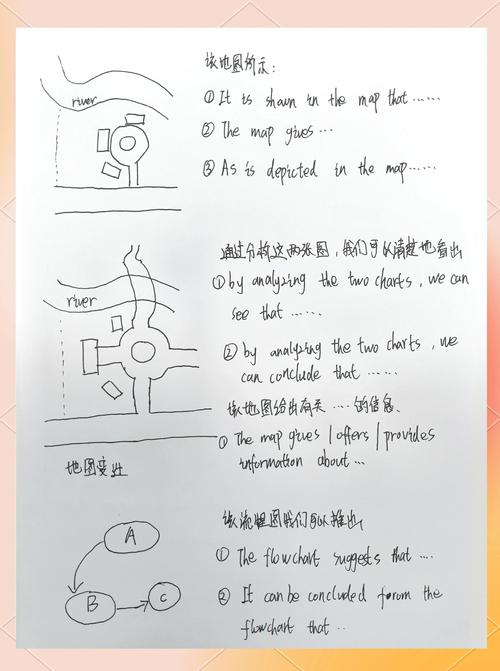 river
该地图所示:
① It is shawn in the map that ......
② The map gives ...
③ As is depicted in the map......
river
地图变迁
通过分析这两张图,我们可以清楚地看出
① by analyzing the two charts, we can
see that ......
② by analyzing the two charts, we
can conclude that ......
该地图给出有关 .... 的信息.
① The map gives / offers / provides
information about ...
A
B
C
该流程图我们可以推出
① The flowchart suggests that ....
② It can be concluded forom the
flowchart that ..